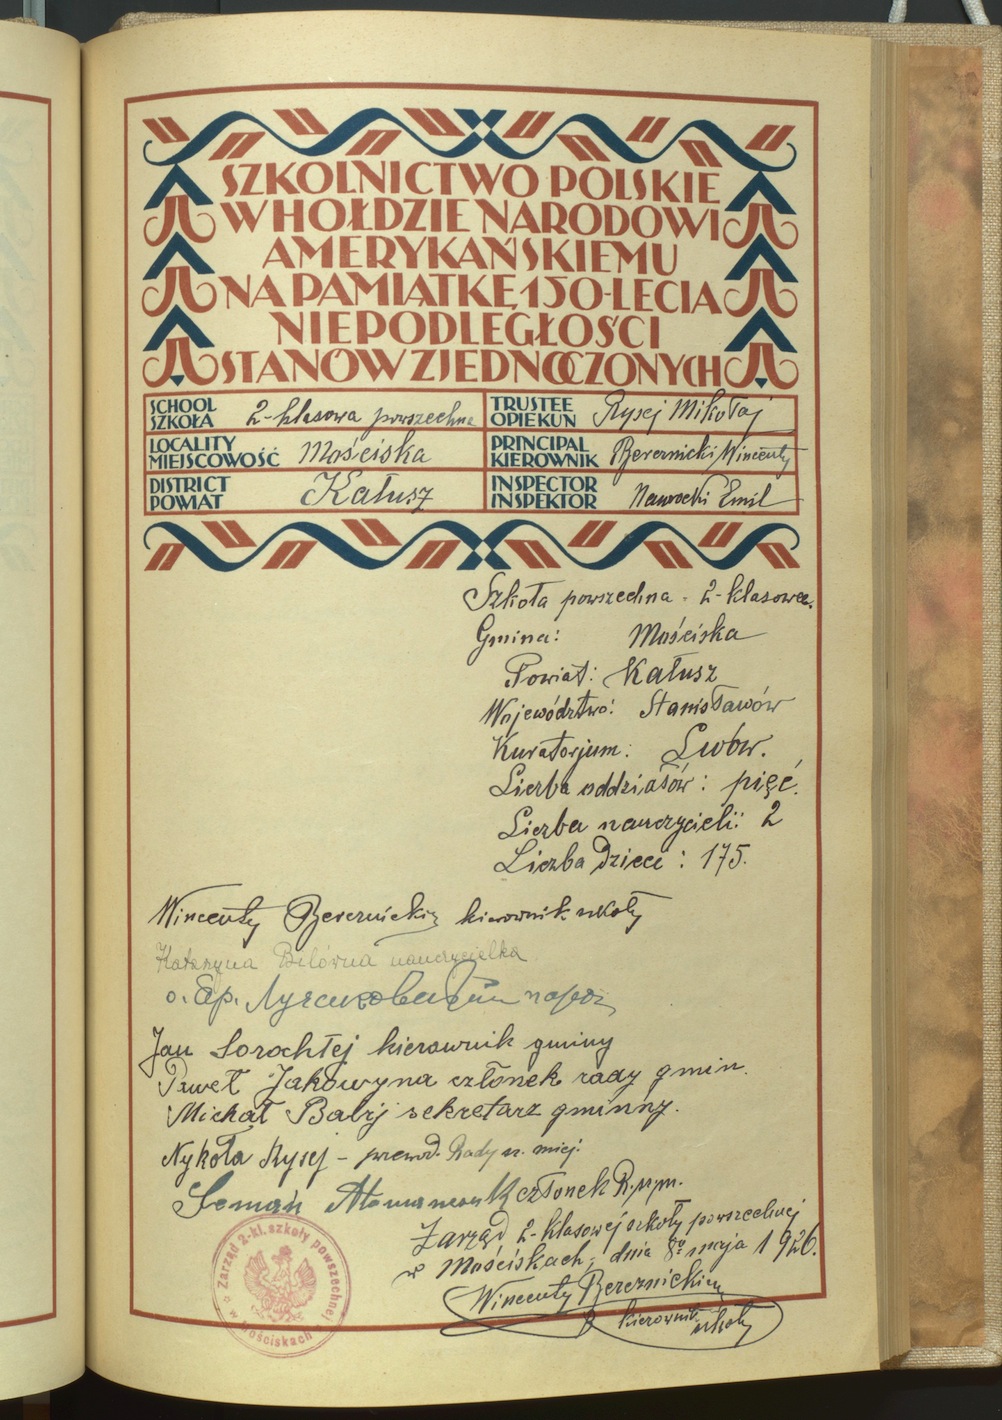 SZKOLNICTWO POLSKIE
W HOŁDZIE NARODOWI
AMERYKAŃSKIEMU
NA PAMIĄTKĘ 150-LECIA
NIEPODLEGŁOŚCI
STANÓW ZJEDNOCZONYCH
SCHOOL SZKOŁA 2-klasowa powszechna
TRUSTEE OPIEKUN Rysej Mikołaj
LOCALITY MIEJSCOWOŚĆ Mościska
PRINCIPAL KIEROWNIK Bereznicki Wincenty
DISTRICT POWIAT Kałusz
INSPECTOR INSPEKTOR Nawrocki Emil
Szkoła powszechna - 2-klasowa.
Gmina: Mościska
Powiat: Kałusz
Województwo: Stanisławów
Kuratorjum: Lwów.
Liczba oddziałów: pięć.
Liczba nauczycieli: 2
Liczba dzieci: 175.
Wincenty Bereznicki kierownik szkoły
Katarzyna Bilówna nauczycielka
o.
Jan Sorochtej kierownik gminy
Paweł Jakowyna członek rady gmin.
Michał Balij sekretarz gminny.
Nykoła Rysej - przewd. Rady sz. miej.
Seman członek R.sz.m.
Zarząd 2-klasowej szkoły powszechnej
w Mościskach, dnia 8go maja 1926.
Wincenty Bereznicki
kierownik
szkoły
Zarząd 2-kl. szkoły powszechnej
w Mościskach